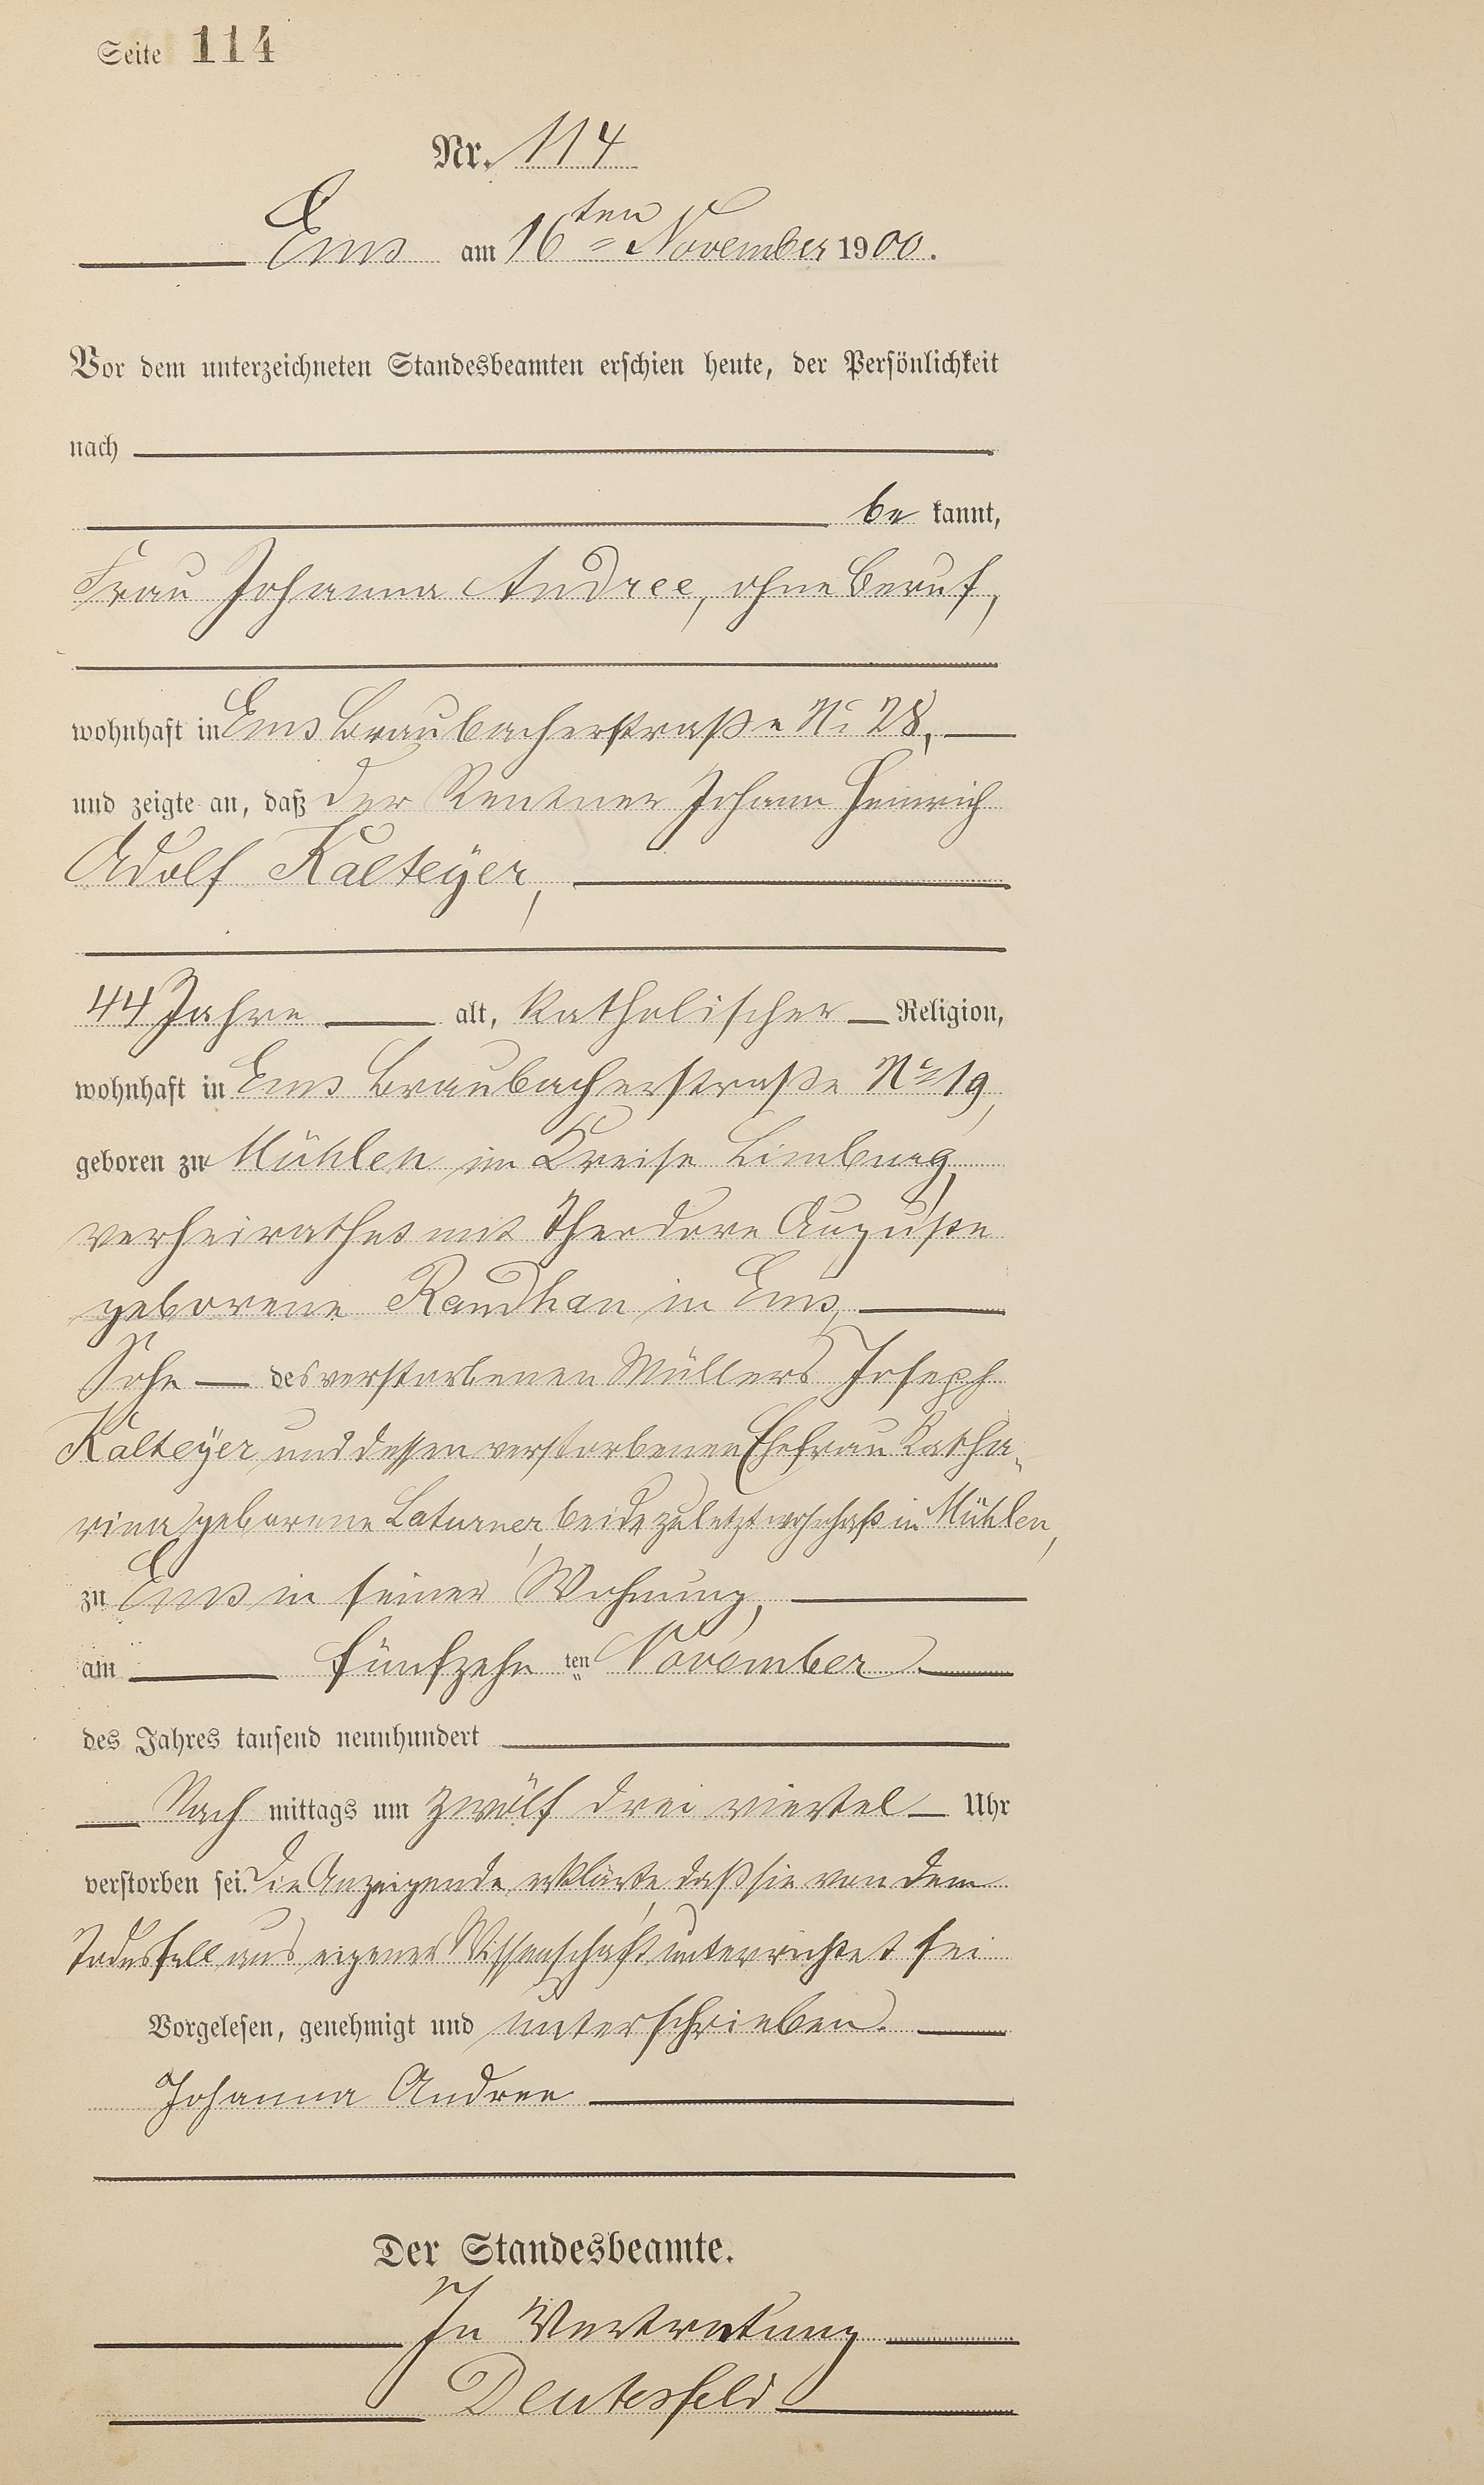 Seite 114
Nr. 114
Ems am 16ten November 1900.
Vor dem unterzeichneten Standesbeamten erschien heute, der Persönlichkeit
nach
be kannt,
Frau Johanna Andree, ohne Beruf,
wohnhaft in Ems Braubacherstraße No 28,
und zeigte an, daß der Rentner Johann Heinrich
Adolf Kalteÿer,
44 Jahre alt, katholischer Religion,
wohnhaft in Ems Braubacherstraße No 19,
geboren zu Mühlen im Kreise Limburg,
verheirathet mit Theodore Auguste
geborene Randhan in Ems,
Sohn des verstorbenen Müllers Joseph
Kalteÿer und dessen verstorbenen Ehefrau Katha-
rina geborene Laturner, beide zuletzt wohnhaft in Mühlen,
zu Ems in seiner Wohnung,
am fünfzehn ten November
des Jahres tausend neunhundert
Nach mittags um zwölf drei viertel Uhr
verstorben sei. Die Anzeigende erklärte, daß sie von dem
Todesfall aus eigener Wissenschaft unterrichtet sei
Vorgelesen, genehmigt und unterschrieben.
Johanna Andree
Der Standesbeamte.
In Vertretung
Deutesfeld